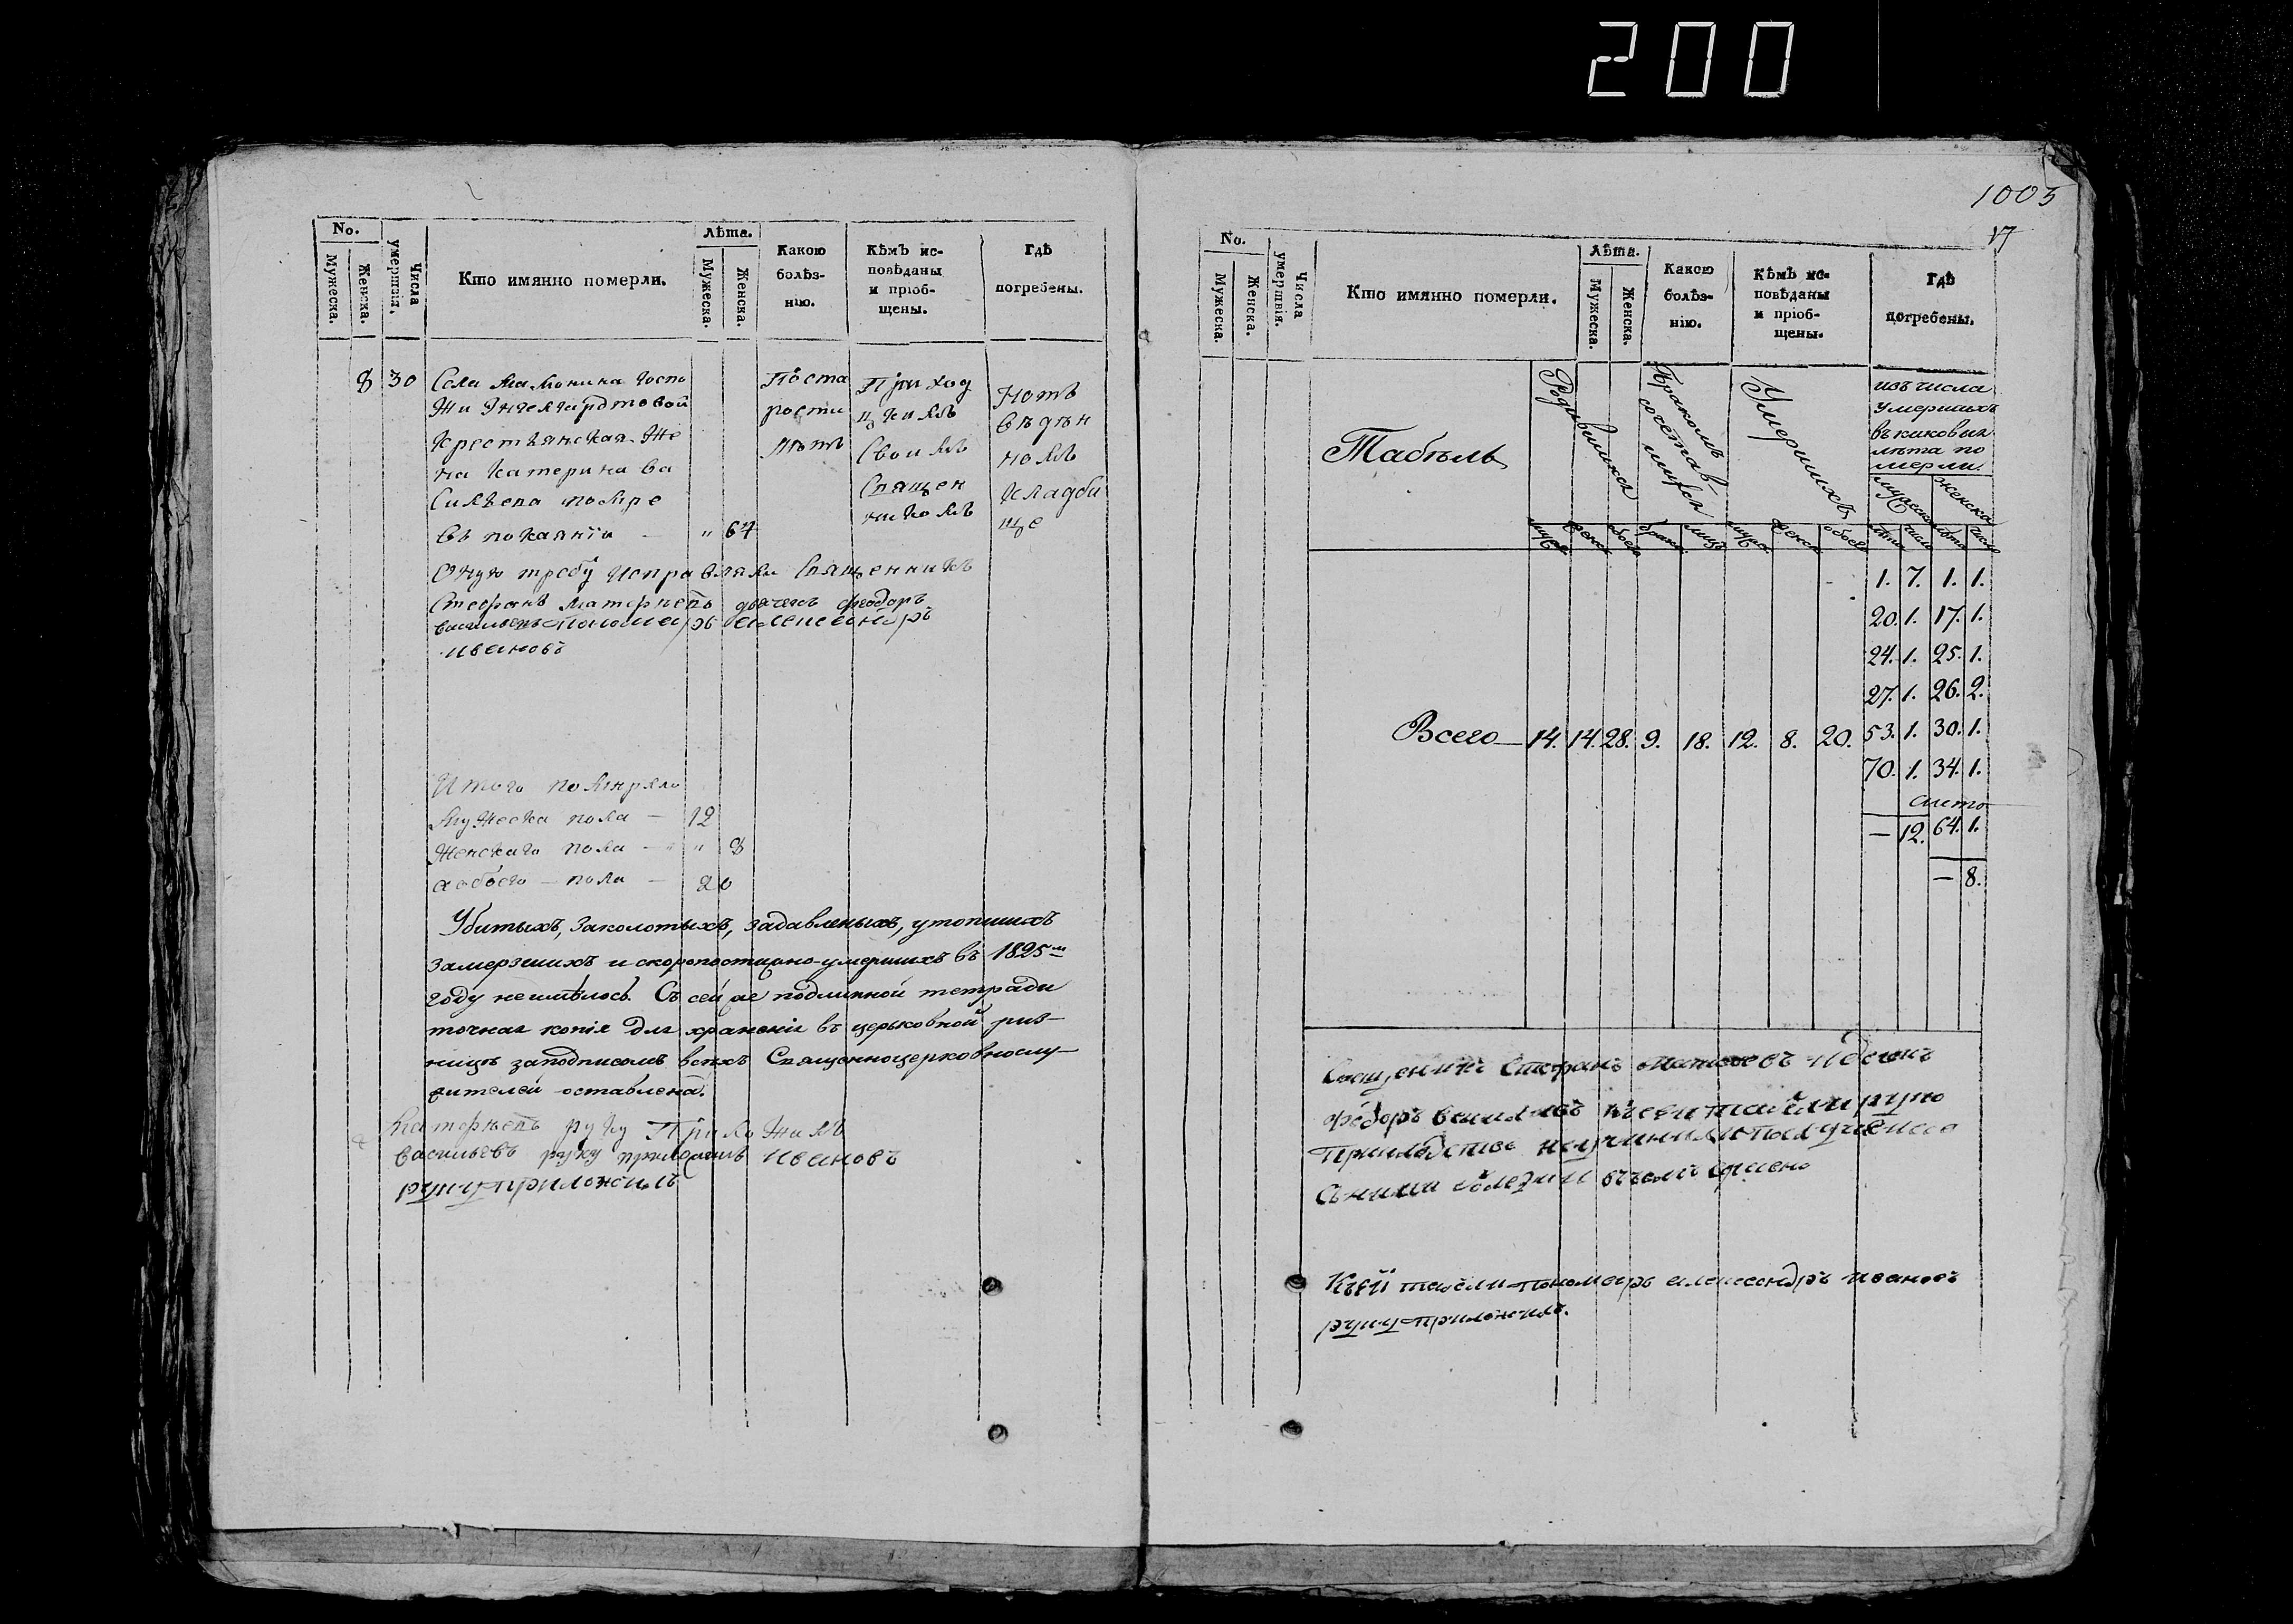 200
1003
17
No.
Мужеска.
Женска.
Числа умершвія.
Кто имянно померли.
Лѣта.
Мужеска.
Женска.
Какою болѣз-
нію.
Кѣмъ ис-
повѣданы
и пріоб-
щены.
Гдѣ
погребены.
8 30 Села Мамонина Госпо
жи Энгелгардтовой
крестьянская же
на Катерина Ва
сильева помре
въ покаянїи — " 64
Поста
рости
лѣтъ
Приход
цкимъ
Своимъ
Священ
никомъ
Нотѣ
вѣден
номъ
Кладби
ще
Оную требу исправляли Священникъ
Стефанъ Матфѣевъ дьячекъ Феодоръ
Васильевъ пономарь александръ
ивановъ
Итого помѣрло
Мужеска пола — 12
Женскаго пола — " 8
а обоего — пола — 20
Убитыхъ, заколотыхъ, задавленыхъ, утопшихъ
замерзшихъ и скоропостижно-умершихъ въ 1825м
году неимѣлось. Съ сей же подлинной тетради
точная копія для храненія въ церьковной риз-
ницѣ заподписомъ всѣхъ Священноцерковнослу-
жителей оставлена.
Матфѣевъ руку Приложилъ
васильевъ руку приложилъ ивановъ
руку приложилъ
No.
Мужеска.
Женска.
Числа умершвія.
Кто имянно померли.
Лѣта.
Мужеска.
Женска.
Какою
болѣз-
нію.
Кѣмъ ис-
повѣданы
и пріоб-
щены.
Гдѣ
погребены.
Табель
Родившихся
Бракомъ
сочетав-
шихся
Умершихъ
изъ числа
умершихъ
въ каковыя
лѣта по
мерли.
мужеска
женска
муже женск обоего браки лицъ муже женск обоего лѣта число лѣта число
1. 7. 1. 1.
20. 1. 17. 1.
24. 1. 25. 1.
27. 1. 26. 2.
Всего — 14. 14. 28. 9. 18. 12. 8. 20. 53. 1. 30. 1.
70. 1. 34. 1.
— 12. 64. 1.
— 8.
Священникъ Стефанъ Матфеевъ
Федоръ васильевъ
Къей табели пономарь александръ ивановъ
руку приложилъ.